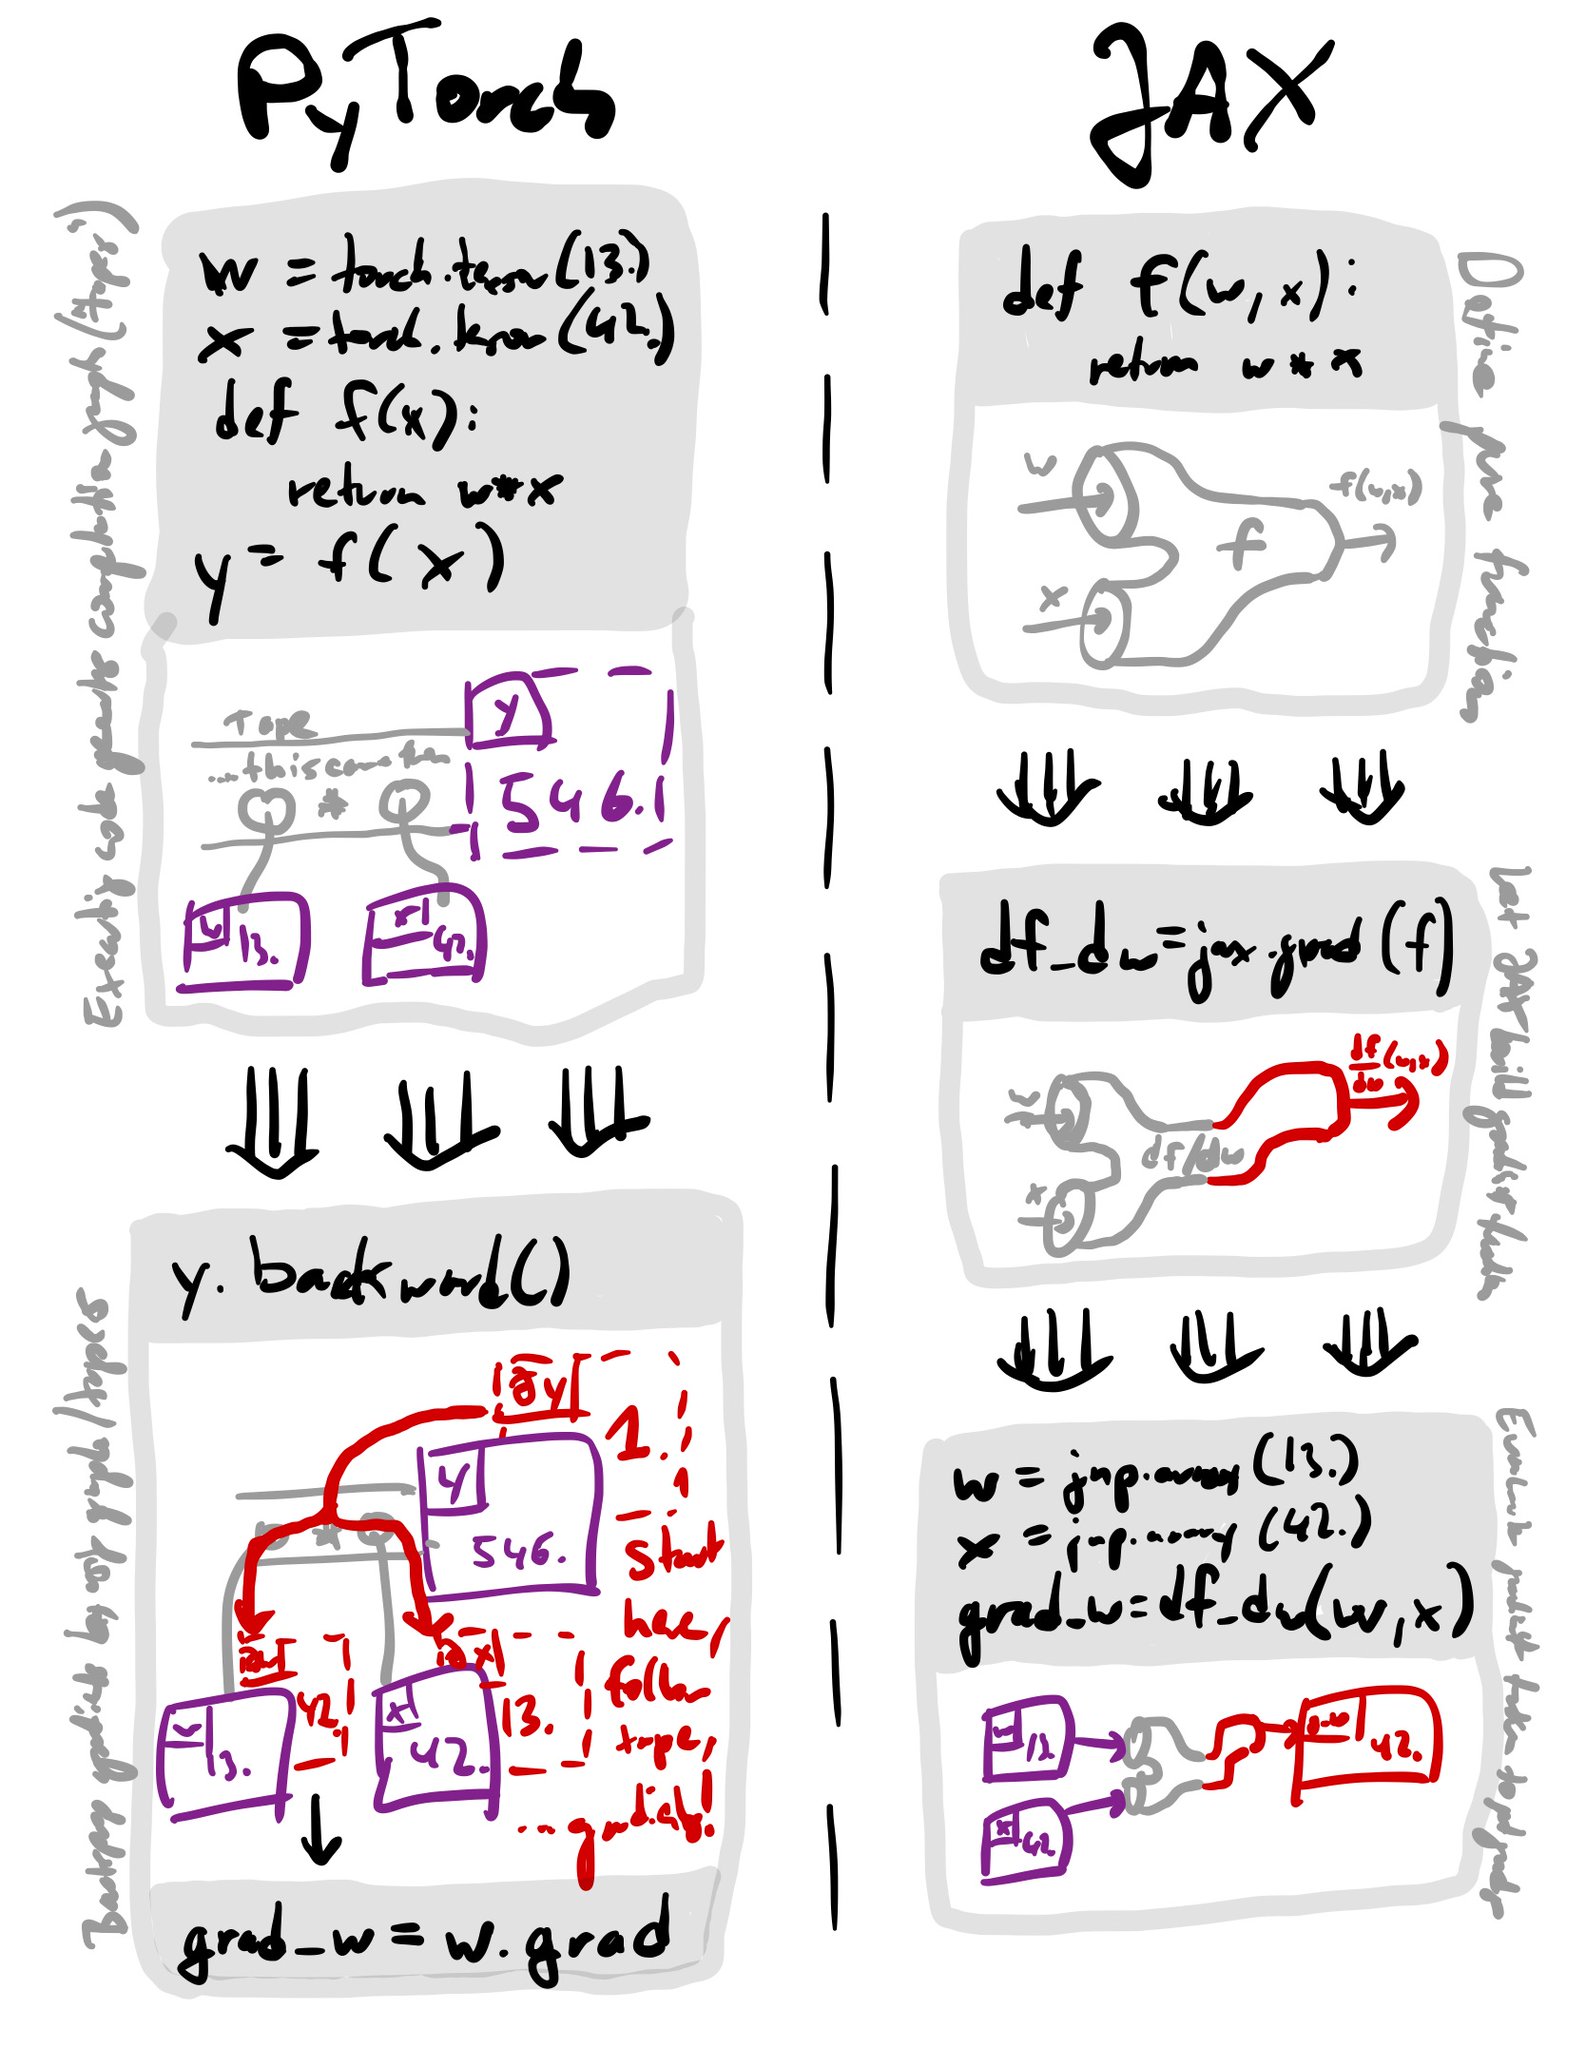 PyTorch
Executing code records computation graph ("tape")
w = torch.tensor(13.)
x = torch.tensor(42.)
def f(x):
return w*x
y = f(x)
Tape
...this came from
*
y
546.
w
13.
x
42.
y.backward()
backprop gradients by graph/tapes
∂y
1.
y
546.
*
start
here,
follow
tape,
...gradients!
∂w
42.
∂x
13.
w
13.
x
42.
grad_w = w.grad
JAX
Define pure function
def f(w, x):
return w * x
w
x
f
f(w,x)
Let JAX build gradient function
df_dw = jax.grad(f)
w
x
df/dw
df/dw (w,x)
Evaluate gradient function to get grads
w = jnp.array(13.)
x = jnp.array(42.)
grad_w = df_dw(w, x)
w
13.
x
42.
g_w
42.